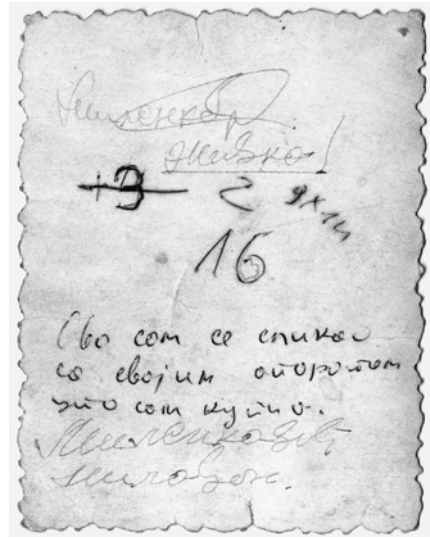 Живко
+3 2 9x14
16
Ово сам се сликао
са својим апаратом
што сам купио.
Миленковић
Миловон.